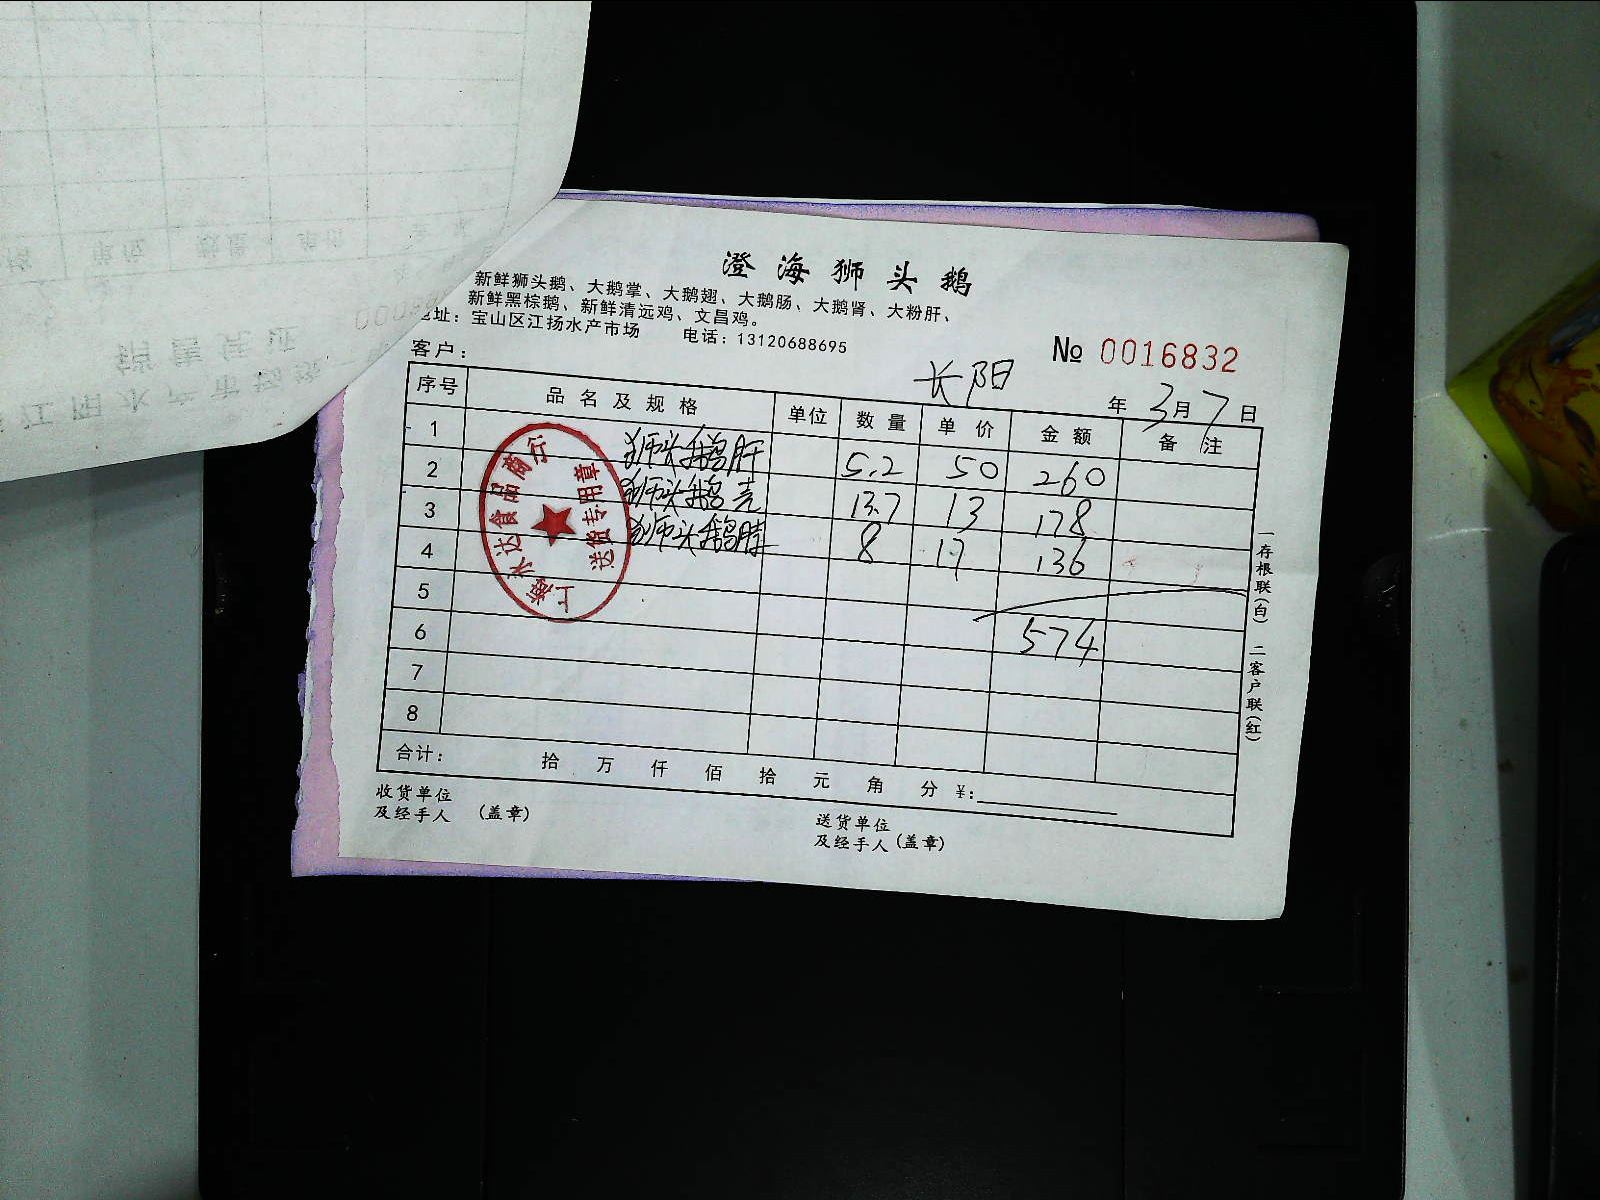 澄海狮头鹅
新鲜狮头鹅、大鹅掌、大鹅翅、大鹅肠、大鹅肾、大粉肝、
新鲜黑棕鹅、新鲜清远鸡、文昌鸡。
地址：宝山区江扬水产市场 电话：13120688695
№ 0016832
客户： 长阳 年 3月7日
序号 品名及规格 单位 数量 单价 金额 备注
1 狮头鹅肝 5.2 50 260
2 狮头鹅壳 13.7 13 178
3 狮头鹅脖 8 17 136
4
5 574
6
7
8
合计： 拾 万 仟 佰 拾 元 角 分 ¥：
收货单位
及经手人 (盖章)
送货单位
及经手人(盖章)
一存根联(白) 二客户联(红)
上海永达食品商行
送货专用章
销售凭证
江阳水产市场